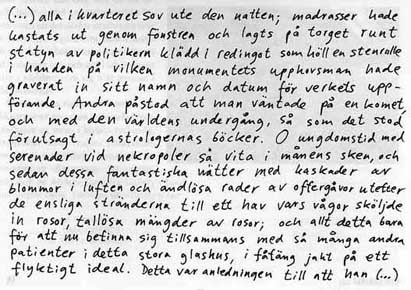 (...) alla i kvarteret sov ute den natten; madrasser hade
kastats ut genom fönstren och lagts på torget runt
statyn av politikern klädd i redingot som höll en stenrulle
i handen på vilken monumentets upphovsman hade
graverat in sitt namn och datum för verkets upp-
förande. Andra påstod att man väntade på en komet
och med den världens undergång, så som det stod
förutsagt i astrologernas böcker. O ungdomstid med
serenader vid nekropoler så vita i månens sken, och
sedan dessa fantastiska nätter med kaskader av
blommor i luften och ändlösa rader av offergåvor utefter
de ensliga stränderna till ett hav vars vågor sköljde
in rosor, tallösa mängder av rosor; och allt detta bara
för att nu befinna sig tillsammans med så många andra
patienter i detta stora glashus, i fåfäng jakt på ett
flyktigt ideal. Detta var anledningen till att han (...)